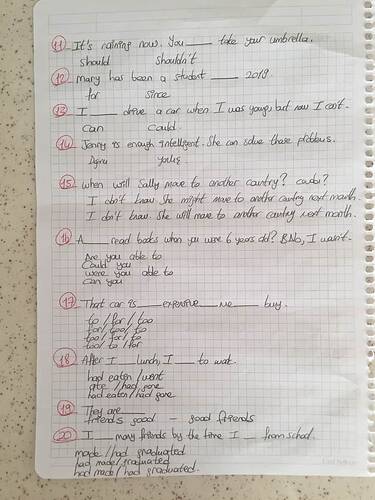 11 It's raining now. You ____ take your umbrella.
should shouldn't
12 Mary has been a student ____ 2019.
for since
13 I ____ drive a car when I was young, but now I can't.
can could
14 Jenny is enough intelligent. She can solve these problems.
Doğru yanlış
15 when will Sally move to another country? cevabı?
I don't know. She might move to another country next month.
I don't know. She will move to another country next month.
16 A ____ read books when you were 6 years old? B No, I wasn't.
Are you able to
Could you
were you able to
can you
17 That car is ____ expensive ____ me ____ buy.
to / for / too
for / too / to
too / for / to
too / to / for
18 After I ____ lunch, I ____ to wat.
had eaten / went
ate / had gone
had eaten / had gone
19 They are ____
friends good - good friends
20 I ____ many friends by the time I __ from school.
made / had graduated
had made / graduated
had made / had graduated.